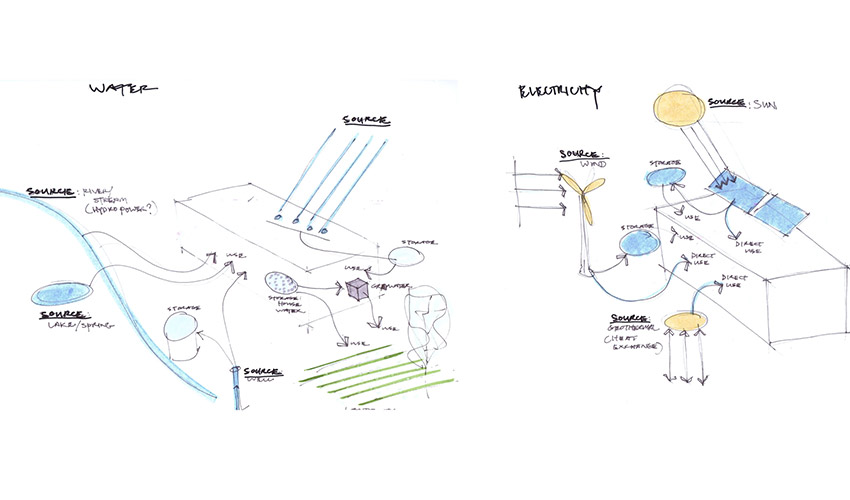 WATER
SOURCE
SOURCE: RIVER/
STREAM
(HYDROPOWER?)
USE
STORAGE
USE
GREYWATER
STORAGE:
HOUSE
WATER
USE
USE
STORAGE
SOURCE:
LAKE/SPRING
SOURCE:
WELL
ELECTRICITY
SOURCE: SUN
SOURCE:
WIND
STORAGE
USE
STORAGE
USE
DIRECT
USE
DIRECT
USE
DIRECT
USE
SOURCE:
GEOTHERMAL
(HEAT
EXCHANGE)